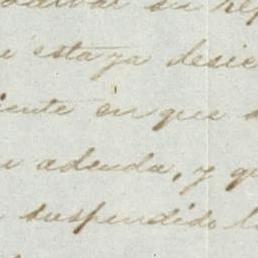 su rep
esta ya desie
iente en que
adeuda, y qu
suspendido lo